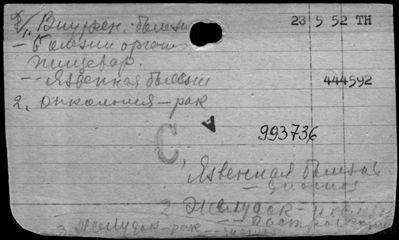 1. Внутрен. болезни
23 5 52 ТН
— Болезни органов
пищевар.
-- Язвенная болезнь
444592
2. Онкология — рак
С
993736
Язвенная болезнь
— диагноз
2 Желудок —
3 Желудок — рак —